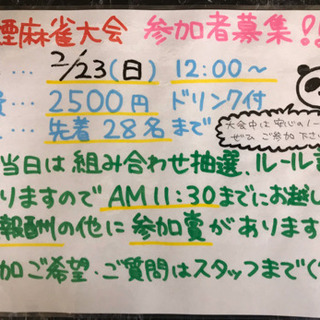 煙麻雀大会 参加者募集!!
… 2/23(日) 12:00〜
費… 2500円 ドリンク付
… 先着28名まで
大会中は安心のノー
ぜひご参加下さい
当日は組み合わせ抽選、ルール説
りますのでAM11:30までにお越し
報酬の他に参加賞があります
加ご希望・ご質問はスタッフまで(